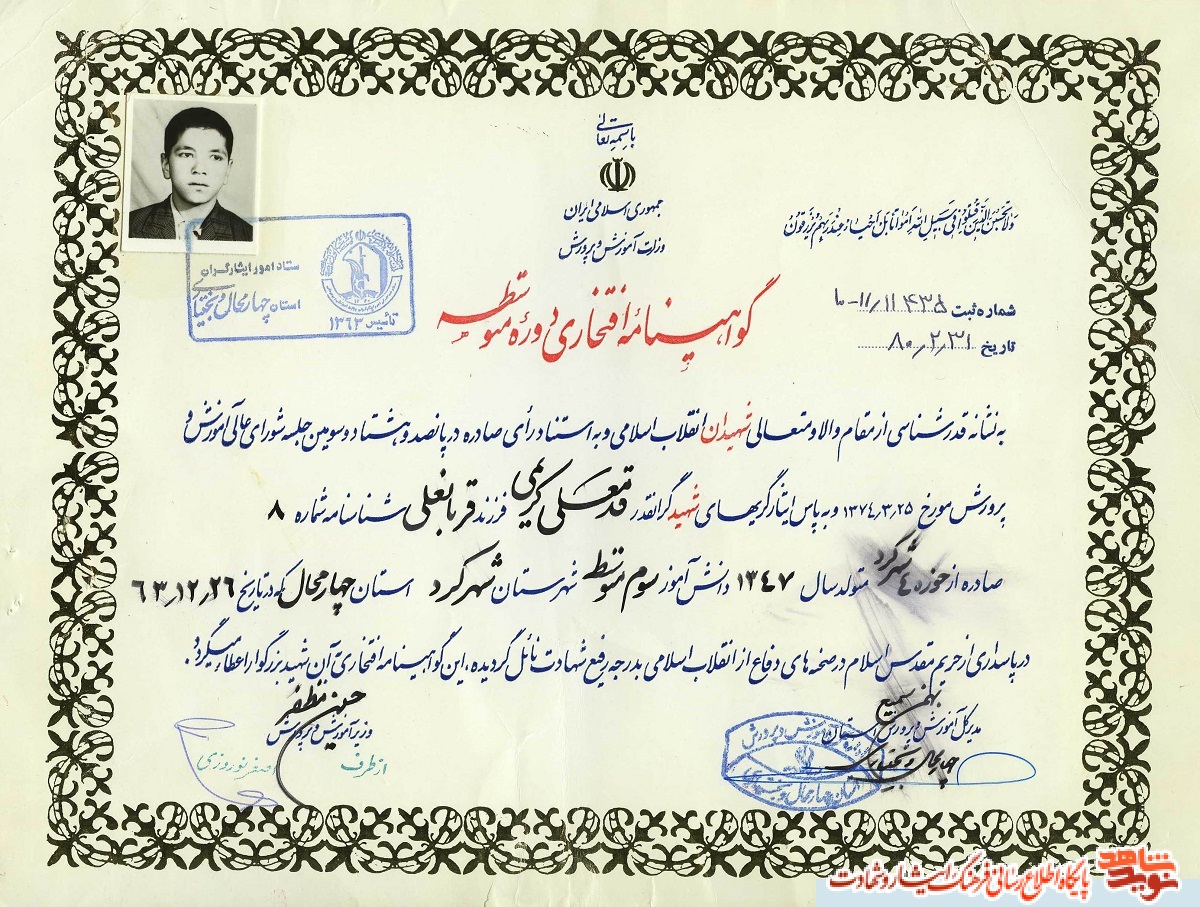 باسمه تعالی
جمهوری اسلامی ایران
وزارت آموزش و پرورش
ولا تحسبن الذین قتلوا فی سبیل الله امواتا بل احیاء عند ربهم یرزقون
ستاد امور ایثارگران
استان چهارمحال و بختیاری
تأسیس ۱۳۶۳
گواهینامه افتخاری دوره متوسطه
شماره ثبت ۱۰-۱۱/۱۱۴۳۵
تاریخ ۸۰/۲/۳۱
به نشانه قدرشناسی از مقام والا و متعالی شهیدان انقلاب اسلامی و به استناد رأی صادره در پانصد و هشتاد و سومین جلسه شورای عالی آموزش و
پرورش مورخ ۱۳۷۴/۳/۲۵ و به پاس ایثارگریهای شهید گرانقدر قدمعلی کریمی فرزند قربانعلی شناسنامه شماره ۸
صادره از حوزه ۴ شهرکرد متولد سال ۱۳۴۷ دانش آموز سوم متوسطه شهرستان شهرکرد استان چهارمحال که در تاریخ ۶۳/۱۲/۲۶
در پاسداری از حریم مقدس اسلام در صحنه های دفاع از انقلاب اسلامی بدرجه رفیع شهادت نائل گردیده، این گواهینامه افتخاری به آن شهید بزرگوار اعطاء میگردد.
بهمن سمیع
مدیرکل آموزش و پرورش استان
چهارمحال و بختیاری
حسین مظفر
وزیر آموزش و پرورش
از طرف
اصغر نوروزی
آموزش و پرورش
استان چهارمحال و بختیاری
نوید شاهد
پایگاه اطلاع رسانی فرهنگ ایثار و شهادت